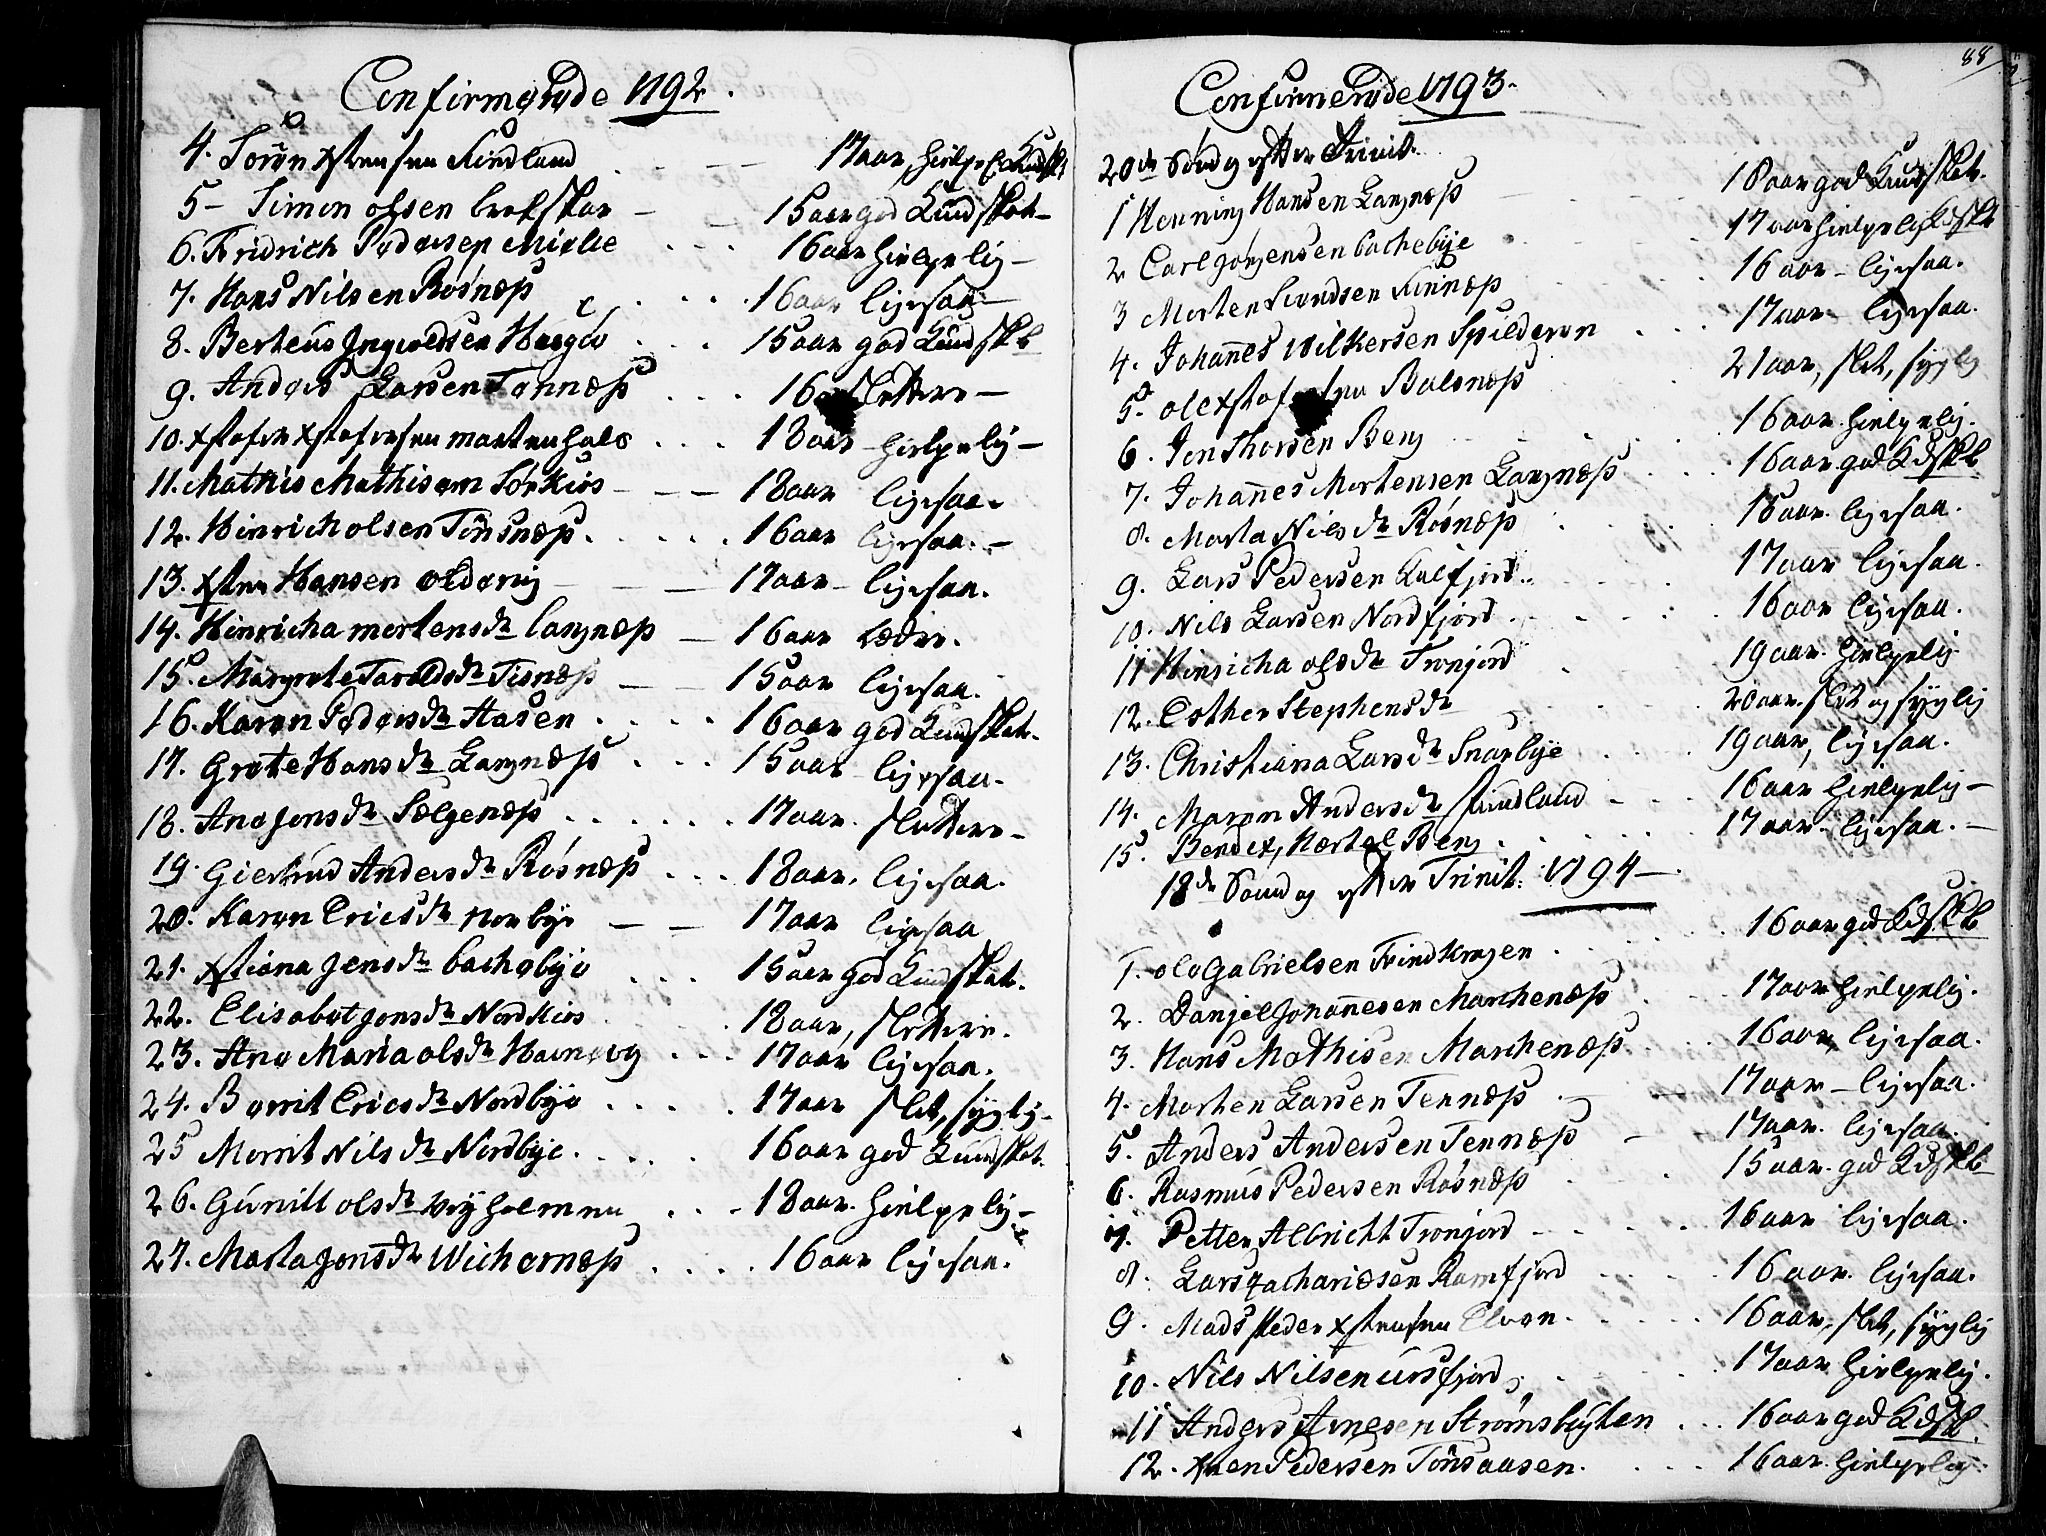 Confirmerede 1792.
4. Sörön Xstensen Kindland - - - 17 aar, hielpel. Kundsk.
5 - Simon olsen brokskar - - 15 aar god Kundskab -
6. Fridrich Pedersen Mielie - - - 16 aar hielpelig -
7. Hans Nilsen Rosnæss . . . . 16 aar ligesaa -
8. Berteus Ingvoldsen - - - 15 aar god Kundskb
9. Anders Larsen Tennæss . . . 16 slettere -
10. Xstofer Xstofersen mortenhals . . . 18 aar - hielpelig -
11. Mathis Mathisøn Sørkios - - - 18 aar ligesaa.
12. Hinrich olsen Tönsnæss . . . . . 16 aar ligesaa. -
13. Xsten Hansen oldervig - - - 17 aar - ligesaa.
14. Hinricha mortensdr langnæss - 16 aar bedre.
15. Margrete Taroldsdr Tisnæss - - 15 aar ligesaa.
16. Karen Pedersdr Stasen . . . . 16 aar god Kundskab.
17. Grete Hansdr Langnæss . . . 15 aar ligesaa.
18. Ane Jonsdr Selgenæss . . . . . . 17 aar. slettere -
19. Giertrud Andersdr Rosnæss . . . 18 aar. ligesaa.
20. Karen Ericsdr norbye - - 17 aar ligesaa
21. Xstiana Jensdr bachebye . . . 15 aar god Kundskab.
22. Elisabet Jonsdr Nordkios . . . . 18 aar, slettere.
23. Ane Maria olsdr Havnevg - - - 17 aar ligesaa.
24. Berrit Ericsdr Nordbye . . . . . 17 aar slet, sÿglig -
25 Merrit Nilsdr Nordbye . . . . . 16 aar god Kundskab.
26. Gunill olsdr Vÿholmen . . . 18 aar. hielpelig -
27. Marta Jonsdr Wichernæss . . . . 16 aar ligesaa.
88
Confirmerede 1793.
20de Søndg efter Trinit.
1 Henning Hansen Langnæss - - 18 aar god Kundskab.
2 Carl Jørgensen bachebÿe . - - 17 aar hielpelig Kdskb
3 Morten Simdsen Finnæss - - 16 aar - ligesaa.
4. Johannes Wilkersen Spilderen . . . 17 aar - ligesaa.
5. ole Xstofersen Balsnæss . 21 aar, slet, sÿglig
6. Jon Thorsen Berg . . . 16 aar. hielpelig.
7. Johannes Mortensen Langnæss . . . 16 aar god Kdskb
8. Marta Nilsdr Rosnæss . . . 18 aar. ligesaa.
9. Lars Pedersen Kalfjord . . - - - 17 aar ligesaa.
10. Nils Larsen Nordfjord . - - - - 16 aar ligesaa.
11 Hinricha olsdr Tronjord . 19 aar. hielpelig
12. Esther Stephensdr . . . 20 aar. slet og sÿglig
13. Christiana Larsdr Snarbÿe . . . 19 aar, ligesaa.
14. Maren Andersdr Kindland - - - 16 aar hielpelig -
15. Bendix, Hertel Berg . . . . . 17 aar. ligesaa. -
18de Søndag efter Trinit: 1794 -
1. ole Gabrielsen Trindkragen . . . . 16 aar god Kdskb
2. Danjel Johannesen Marchenæss . . . 17 aar hielpelig.
3. Hans Mathisen Marchenæss . . . 16 aar, ligesaa.
4. Morten Larsen Tennæss . - - 17 aar - ligesaa.
5. Anders Andersen Tennæss - 17 aar. ligesaa.
6. Rasmus Pedersen Rosnæss . . . 15 aar. god Kdskb
7. Petter Albricht Tronjord - - - - 16 aar ligesaa.
8. Lars Zachariæsen Ramfjord . . . . 16 aar. ligesaa.
9. Mads Peder Xstensen Elven . . . . . 16 aar, slet, sÿglig
10. Nils Nilsen ursfjord . . . . 17 aar. hielpelig.
11 Anders Arnesen Strømsbugten . . . 16 aar god Kdskb.
12. Xsten Pedersen Tönsaasen . . . . 16 aar. hielpelig.